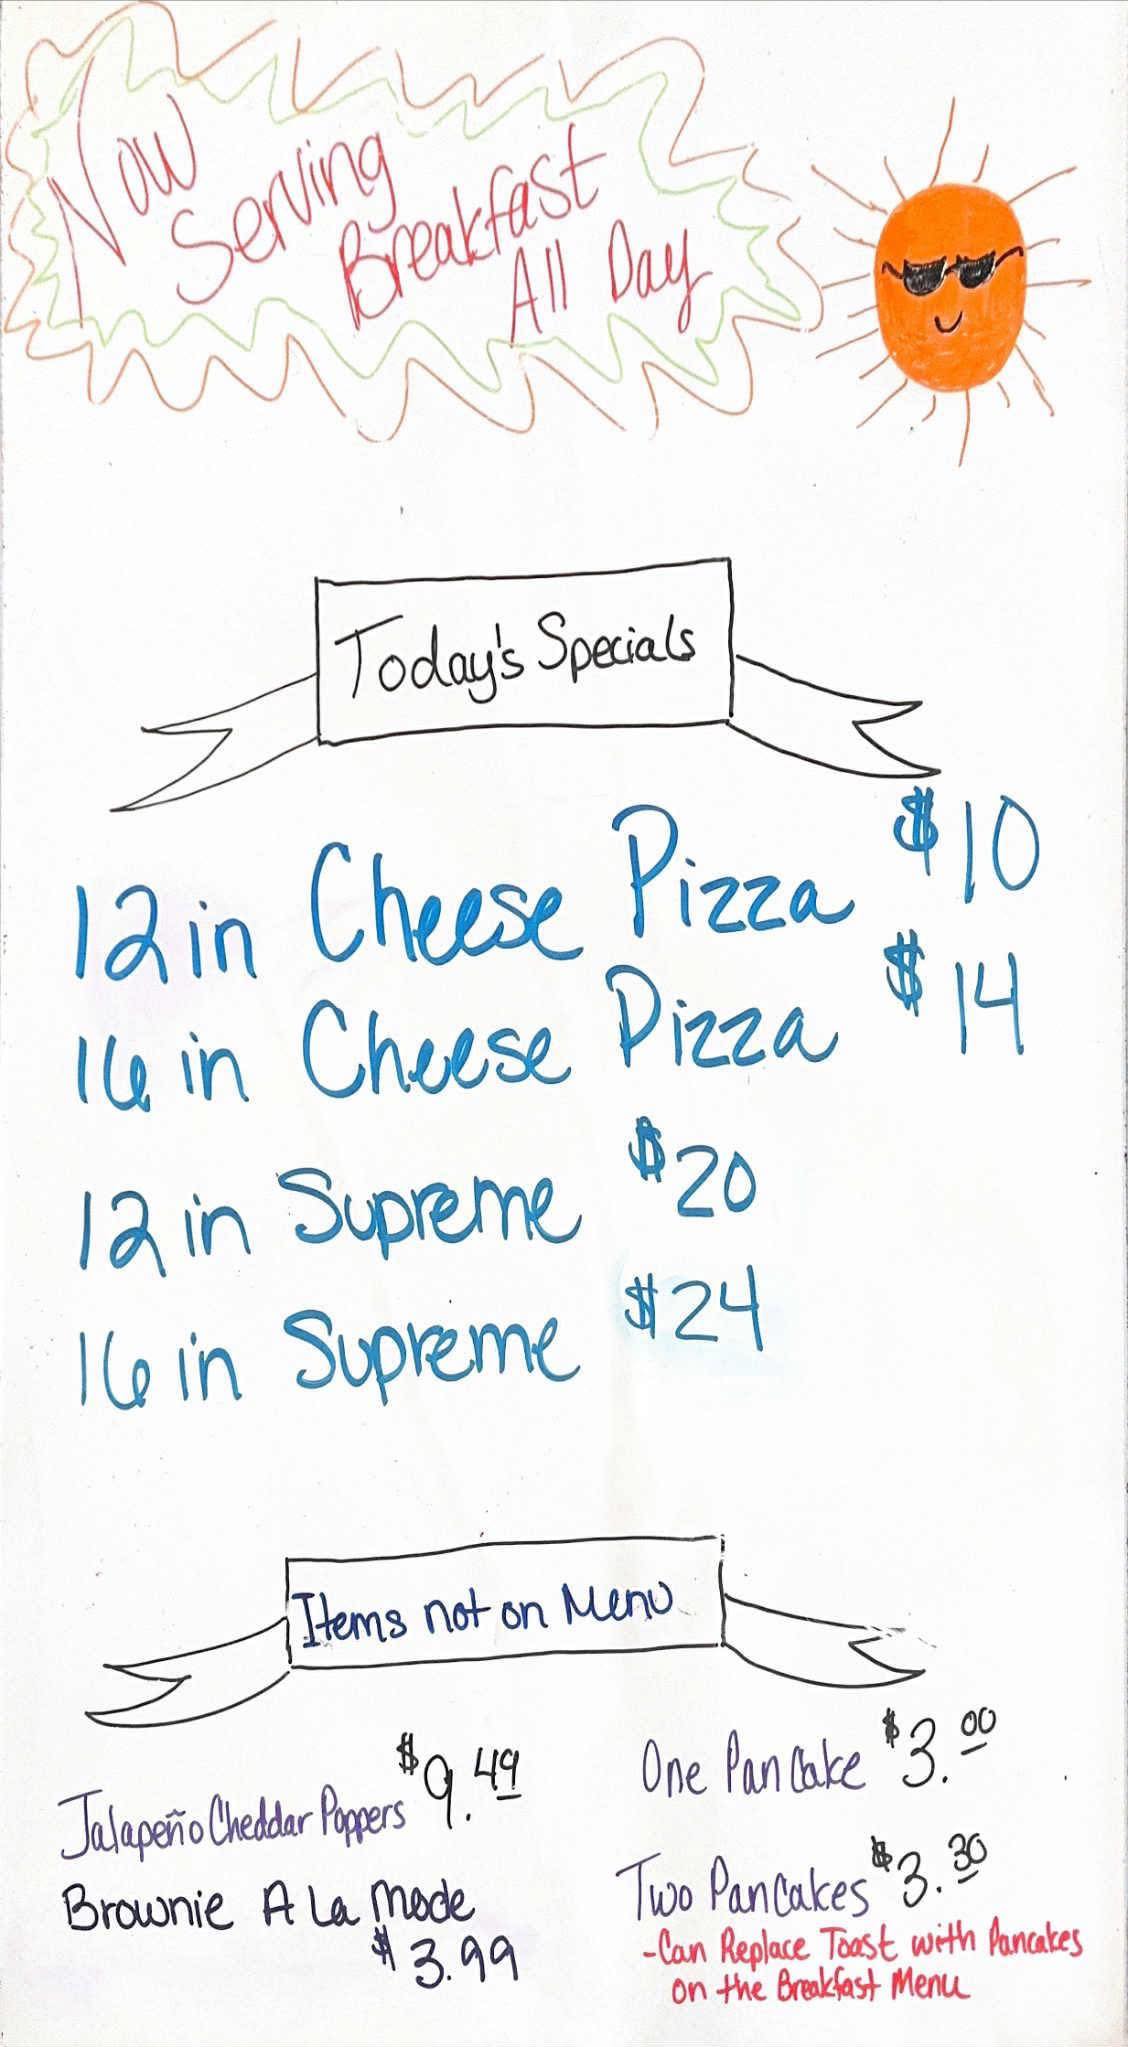 Now
Serving
Breakfast
All Day
Today's Specials
12 in Cheese Pizza $10
16 in Cheese Pizza $14
12 in Supreme $20
16 in Supreme $24
Items not on Menu
Jalapeño Cheddar Poppers $9.49
Brownie A La Mode
$3.99
One Pancake $3.00
Two Pancakes $3.30
-Can Replace Toast with Pancakes
on the Breakfast Menu